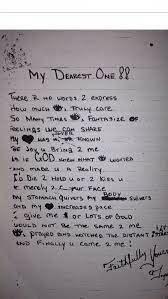 My Dearest One!!
There R no words 2 express
How much 👁, truly care
So Many Times 👁 Fantasize of
feelings we can share
My ♥ was never known
The Joy u Bring 2 me
As if GOD knew what 👁 wanted
and made u a Reality
To Die 2 Hold u or 2 Kiss u
merely 2 your face
My stomach quivers My Body shivers
and my ♥ increases pace
2 give me or Lots of Gold
would not be the same 2 me
👁 proud watched the distant
And finally u come 2 me!
Faithfully Yours